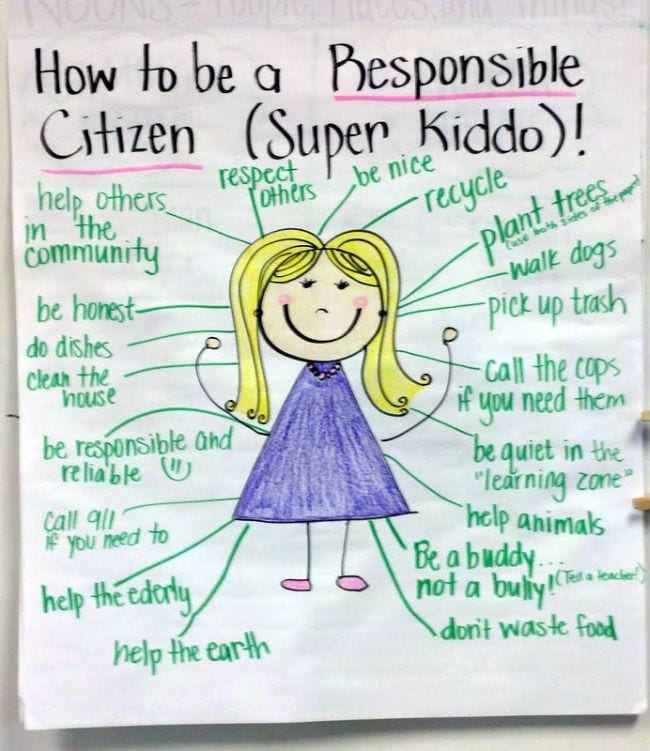 NOUNS - People, Places, and Things!
How to be a Responsible
Citizen (Super Kiddo)!
respect
others
be nice
recycle
help others
in the
community
plant trees
(use both sides of the paper!)
walk dogs
be honest
pick up trash
do dishes
clean the
house
call the cops
if you need them
be responsible and
reliable
be quiet in the
"learning zone"
call 911
if you need to
help animals
help the ederly
Be a buddy...
not a bully! (Tell a teacher!)
help the earth
don't waste food